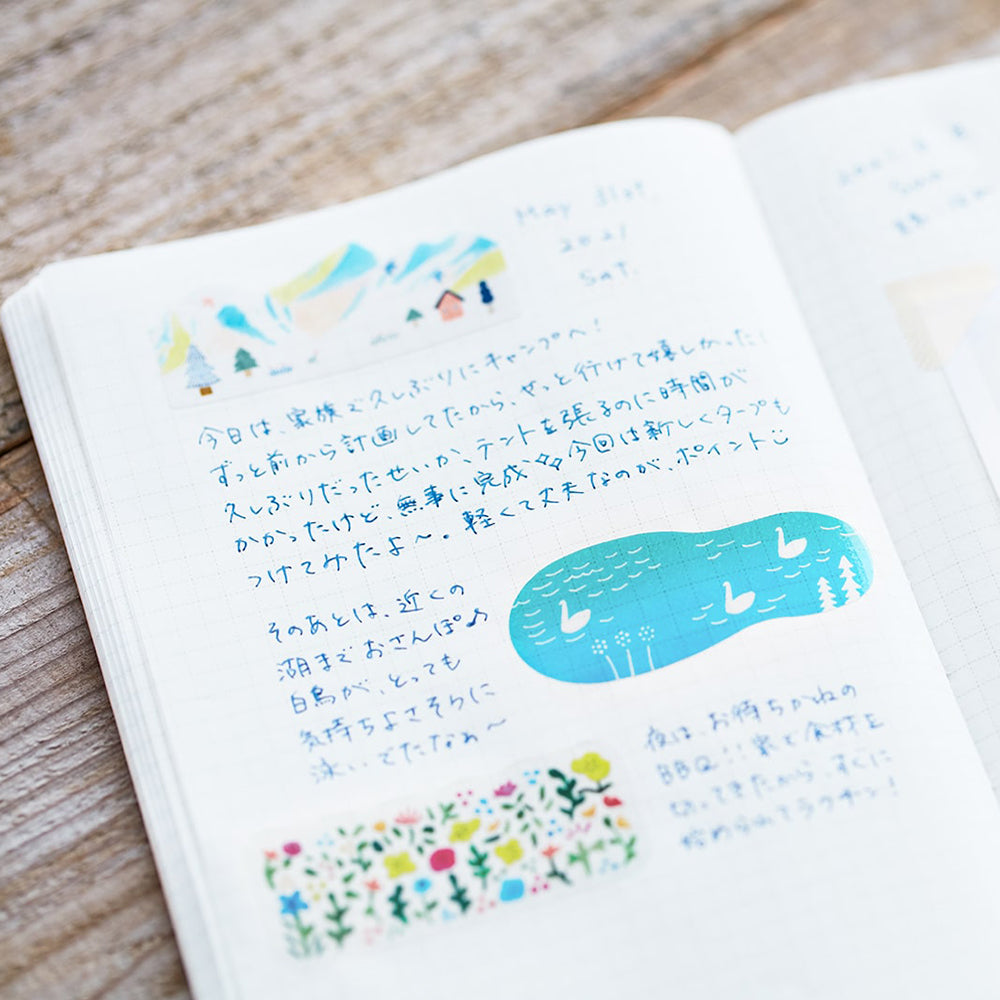 May 31st.
2021
Sat.
今日は、家族で久しぶりにキャンプへ!
ずっと前から計画してたから、やっと行けて嬉しかった!
久しぶりだったせいか、テントを張るのに時間が
かかったけど、無事に完成✧✧今回は新しくタープも
つけてみたよ〜。軽くて丈夫なのが、ポイント☺
そのあとは、近くの
湖までおさんぽ♪
白鳥が、とっても
気持ちよさそうに
泳いでたなぁ〜
夜は、お待ちかねの
BBQ!!家で食材を
切ってきたから、すぐに
始められてラクチン!